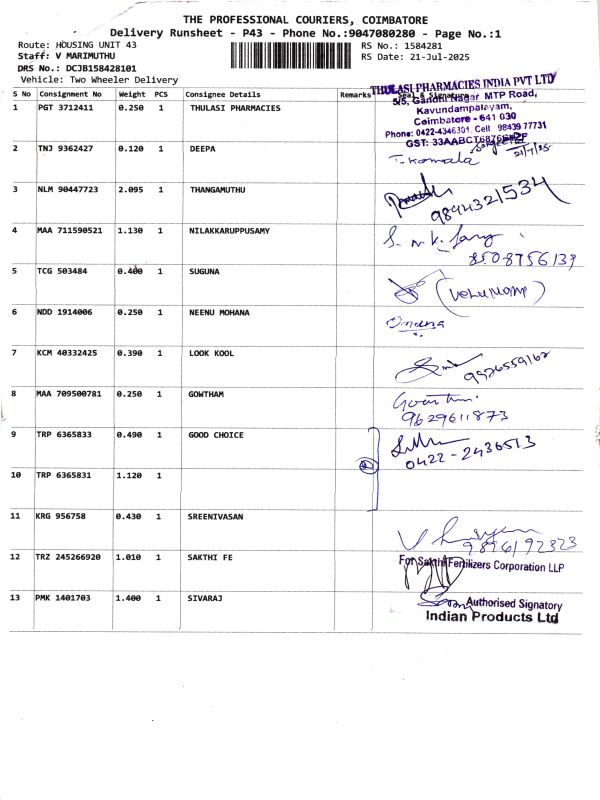 THE PROFESSIONAL COURIERS, COIMBATORE
Delivery Runsheet - P43 - Phone No.:9047080280 - Page No.:1
Route: HOUSING UNIT 43
RS No.: 1584281
Staff: V MARIMUTHU
RS Date: 21-Jul-2025
DRS No.: DCJB158428101
Vehicle: Two Wheeler Delivery
S No Consignment No Weight PCS Consignee Details Remarks Seal & Signature
THULASI PHARMACIES INDIA PVT LTD
5/5, Gandhi Nagar MTP Road,
Kavundampalayam,
Coimbatore - 641 030
Phone: 0422-4346301, Cell 98439 77731
1 PGT 3712411 0.250 1 THULASI PHARMACIES
21/7/25
2 TNJ 9362427 0.120 1 DEEPA T. Komala
3 NLM 90447723 2.095 1 THANGAMUTHU
9894321534
4 MAA 711590521 1.130 1 NILAKKARUPPUSAMY
8508756139
5 TCG 503484 0.400 1 SUGUNA
6 NDD 1914006 0.250 1 NEENU MOHANA
7 KCM 40332425 0.390 1 LOOK KOOL
9926559162
8 MAA 709500781 0.250 1 GOWTHAM
9629611873
9 TRP 6365833 0.490 1 GOOD CHOICE
0422-2436513
10 TRP 6365831 1.120 1
11 KRG 956758 0.430 1 SREENIVASAN
9896192323
12 TRZ 245266920 1.010 1 SAKTHI FE
For Sakthi Fertilizers Corporation LLP
13 PMK 1401703 1.400 1 SIVARAJ
Authorised Signatory
Indian Products Ltd